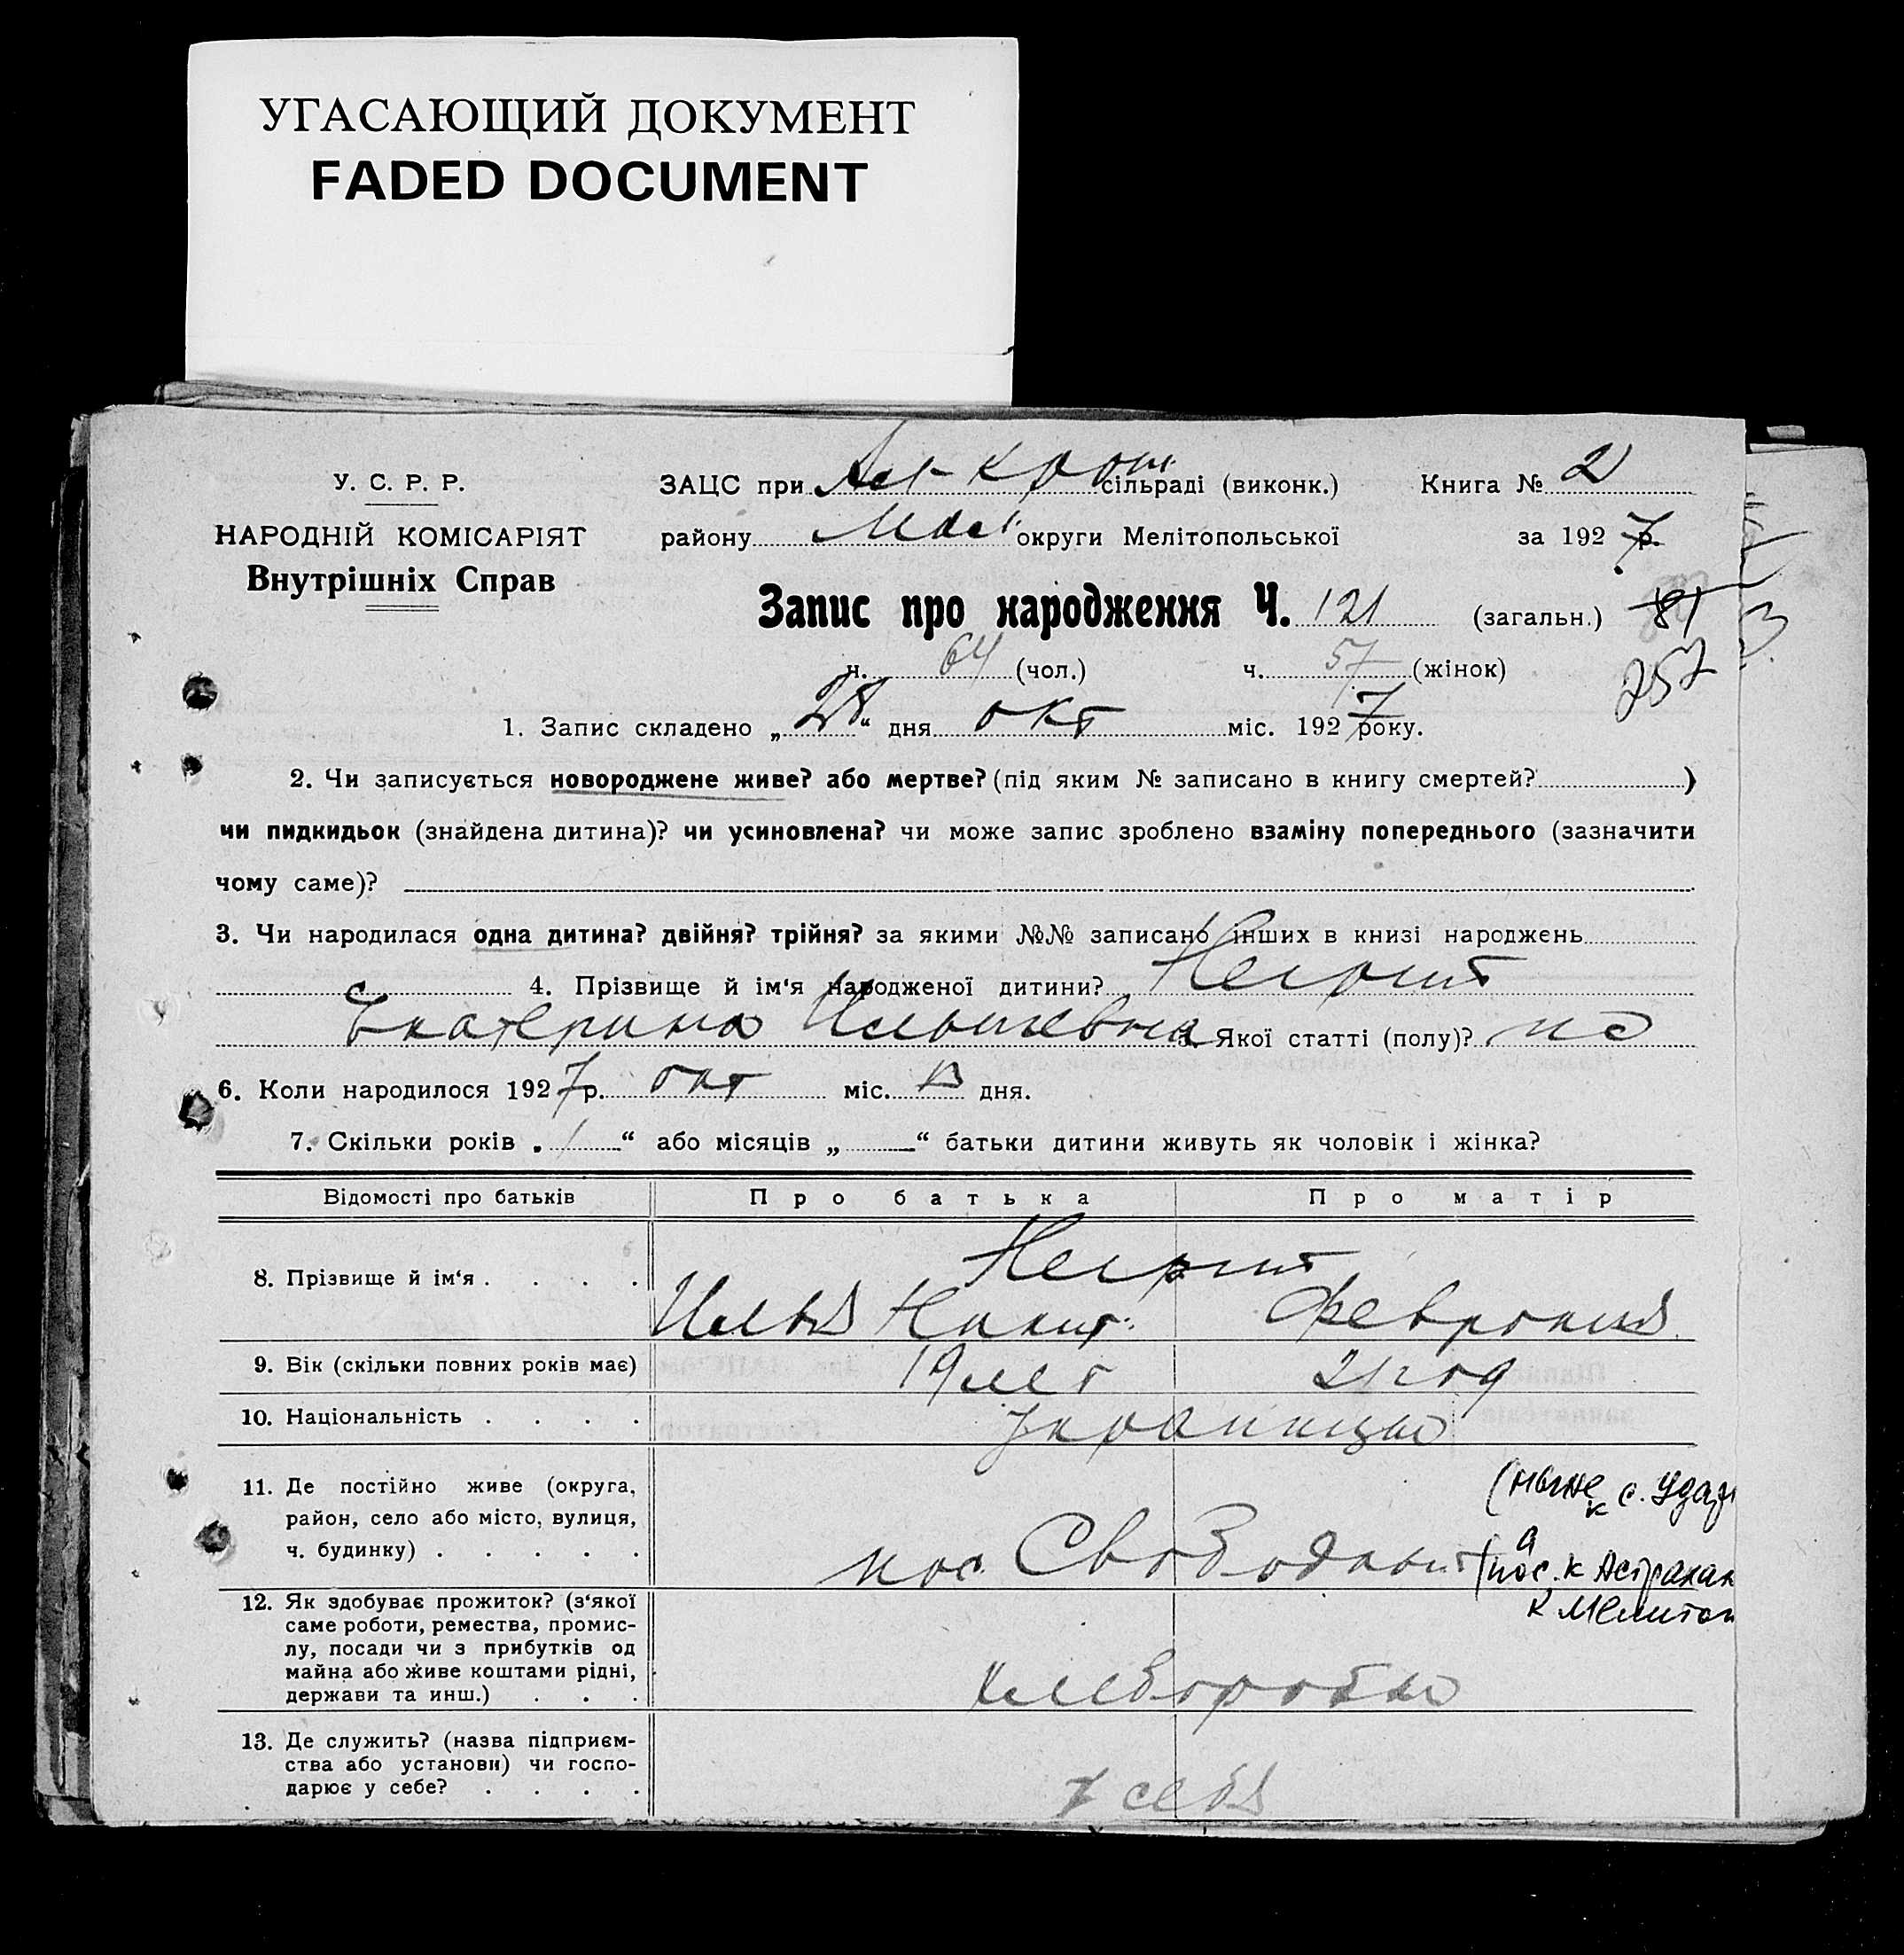 УГАСАЮЩИЙ ДОКУМЕНТ
FADED DOCUMENT
У. С. Р. Р.
НАРОДНІЙ КОМІСАРІЯТ
Внутрішніх Справ
ЗАЦС при сільраді (виконк.) Книга № 2
району округи Мелітопольської за 1927 р.
Запис про народження Ч. 121 (загальн.) 81
257
ч. 64 (чол.) ч. 57 (жінок)
1. Запис складено „28“ дня окт міс. 1927 року.
2. Чи записується новороджене живе? або мертве? (під яким № записано в книгу смертей? )
чи пидкидьок (знайдена дитина)? чи усиновлена? чи може запис зроблено взаміну попереднього (зазначити
чому саме)?
3. Чи народилася одна дитина? двійня? трійня? за якими №№ записано інших в книзі народжень
4. Прізвище й ім'я народженої дитини? Негрит
Екатерина Ильиневна 5. Якої статті (полу)?
6. Коли народилося 1927 р. окт міс. дня.
7. Скільки років „1“ або місяців „ “ батьки дитини живуть як чоловік і жінка?
Відомості про батьків Про батька Про матір
8. Прізвище й ім'я . . . . Негрит
Илья Никит. Феврония
9. Вік (скільки повних років має) 19 лет 21 год
10. Національність . . . . Украинцы
11. Де постійно живе (округа,
район, село або місто, вулиця,
ч. будинку) . . . . . пос. Свободный
(ныне к с.
пос. к Астрахан
к Мелитоп
12. Як здобуває прожиток? (з'якої
саме роботи, ремества, промис-
лу, посади чи з прибутків од
майна або живе коштами рідні,
держави та инш.) . . . Хлеборобы
13. Де служить? (назва підприєм-
ства або установи) чи госпо-
дарює у себе? . . . . У себя